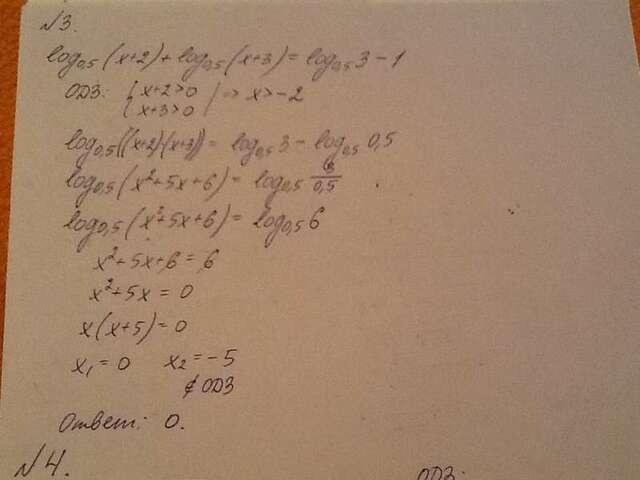 №3.
log₀,₅(x+2)+log₀,₅(x+3)=log₀,₅3-1
ОДЗ: { x+2>0
{ x+3>0 | => x>-2
log₀,₅((x+2)(x+3))=log₀,₅3-log₀,₅0,5
log₀,₅(x²+5x+6)=log₀,₅ 3/0,5
log₀,₅(x²+5x+6)=log₀,₅6
x²+5x+6=6
x²+5x=0
x(x+5)=0
x₁=0 x₂=-5
∉ ОДЗ
Ответ: 0.
№4.
ОДЗ: